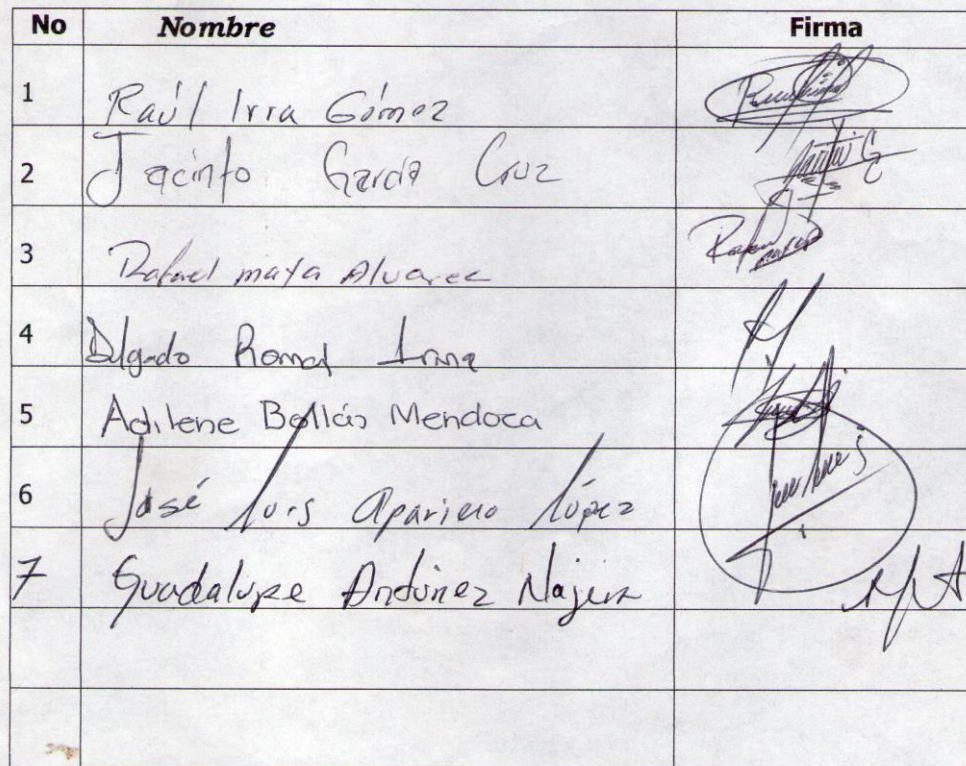 No Nombre Firma
1 Raúl Irra Gómez
2 Jacinto García Cruz
3 Rafael maya Alvarez
4 Delgado Roman Irma
5 Adilene Bollás Mendoca
6 José Luis Aparicio López
7 Guadalupe Antúnez Najera